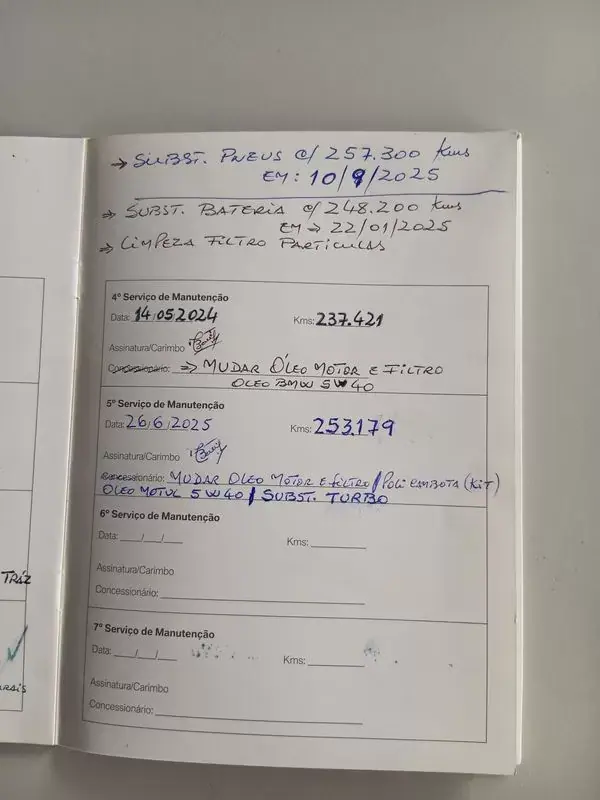 → SUBST. PNEUS c/ 257.300 Kms
EM: 10/9/2025
⇒ SUBST. BATERIA c/ 248.200 Kms
EM → 22/01/2025
⇒ LIMPEZA FILTRO PARTICULAS
4º Serviço de Manutenção
Data: 14/05/2024 Kms: 237.421
Assinatura/Carimbo
Concessionário: ⇒ MUDAR ÓLEO MOTOR E FILTRO
OLEO BMW 5W40
5º Serviço de Manutenção
Data: 26/6/2025 Kms: 253.179
Assinatura/Carimbo
Concessionário: MUDAR OLEO MOTOR E FILTRO / POLI CAMBOTA (KIT)
OLEO MOTUL 5W40 / SUBST. TURBO
6º Serviço de Manutenção
Data: ___/___/___ Kms: ________
Assinatura/Carimbo
Concessionário: ________
7º Serviço de Manutenção
Data: ___/___/___ Kms: ________
Assinatura/Carimbo
Concessionário: ________